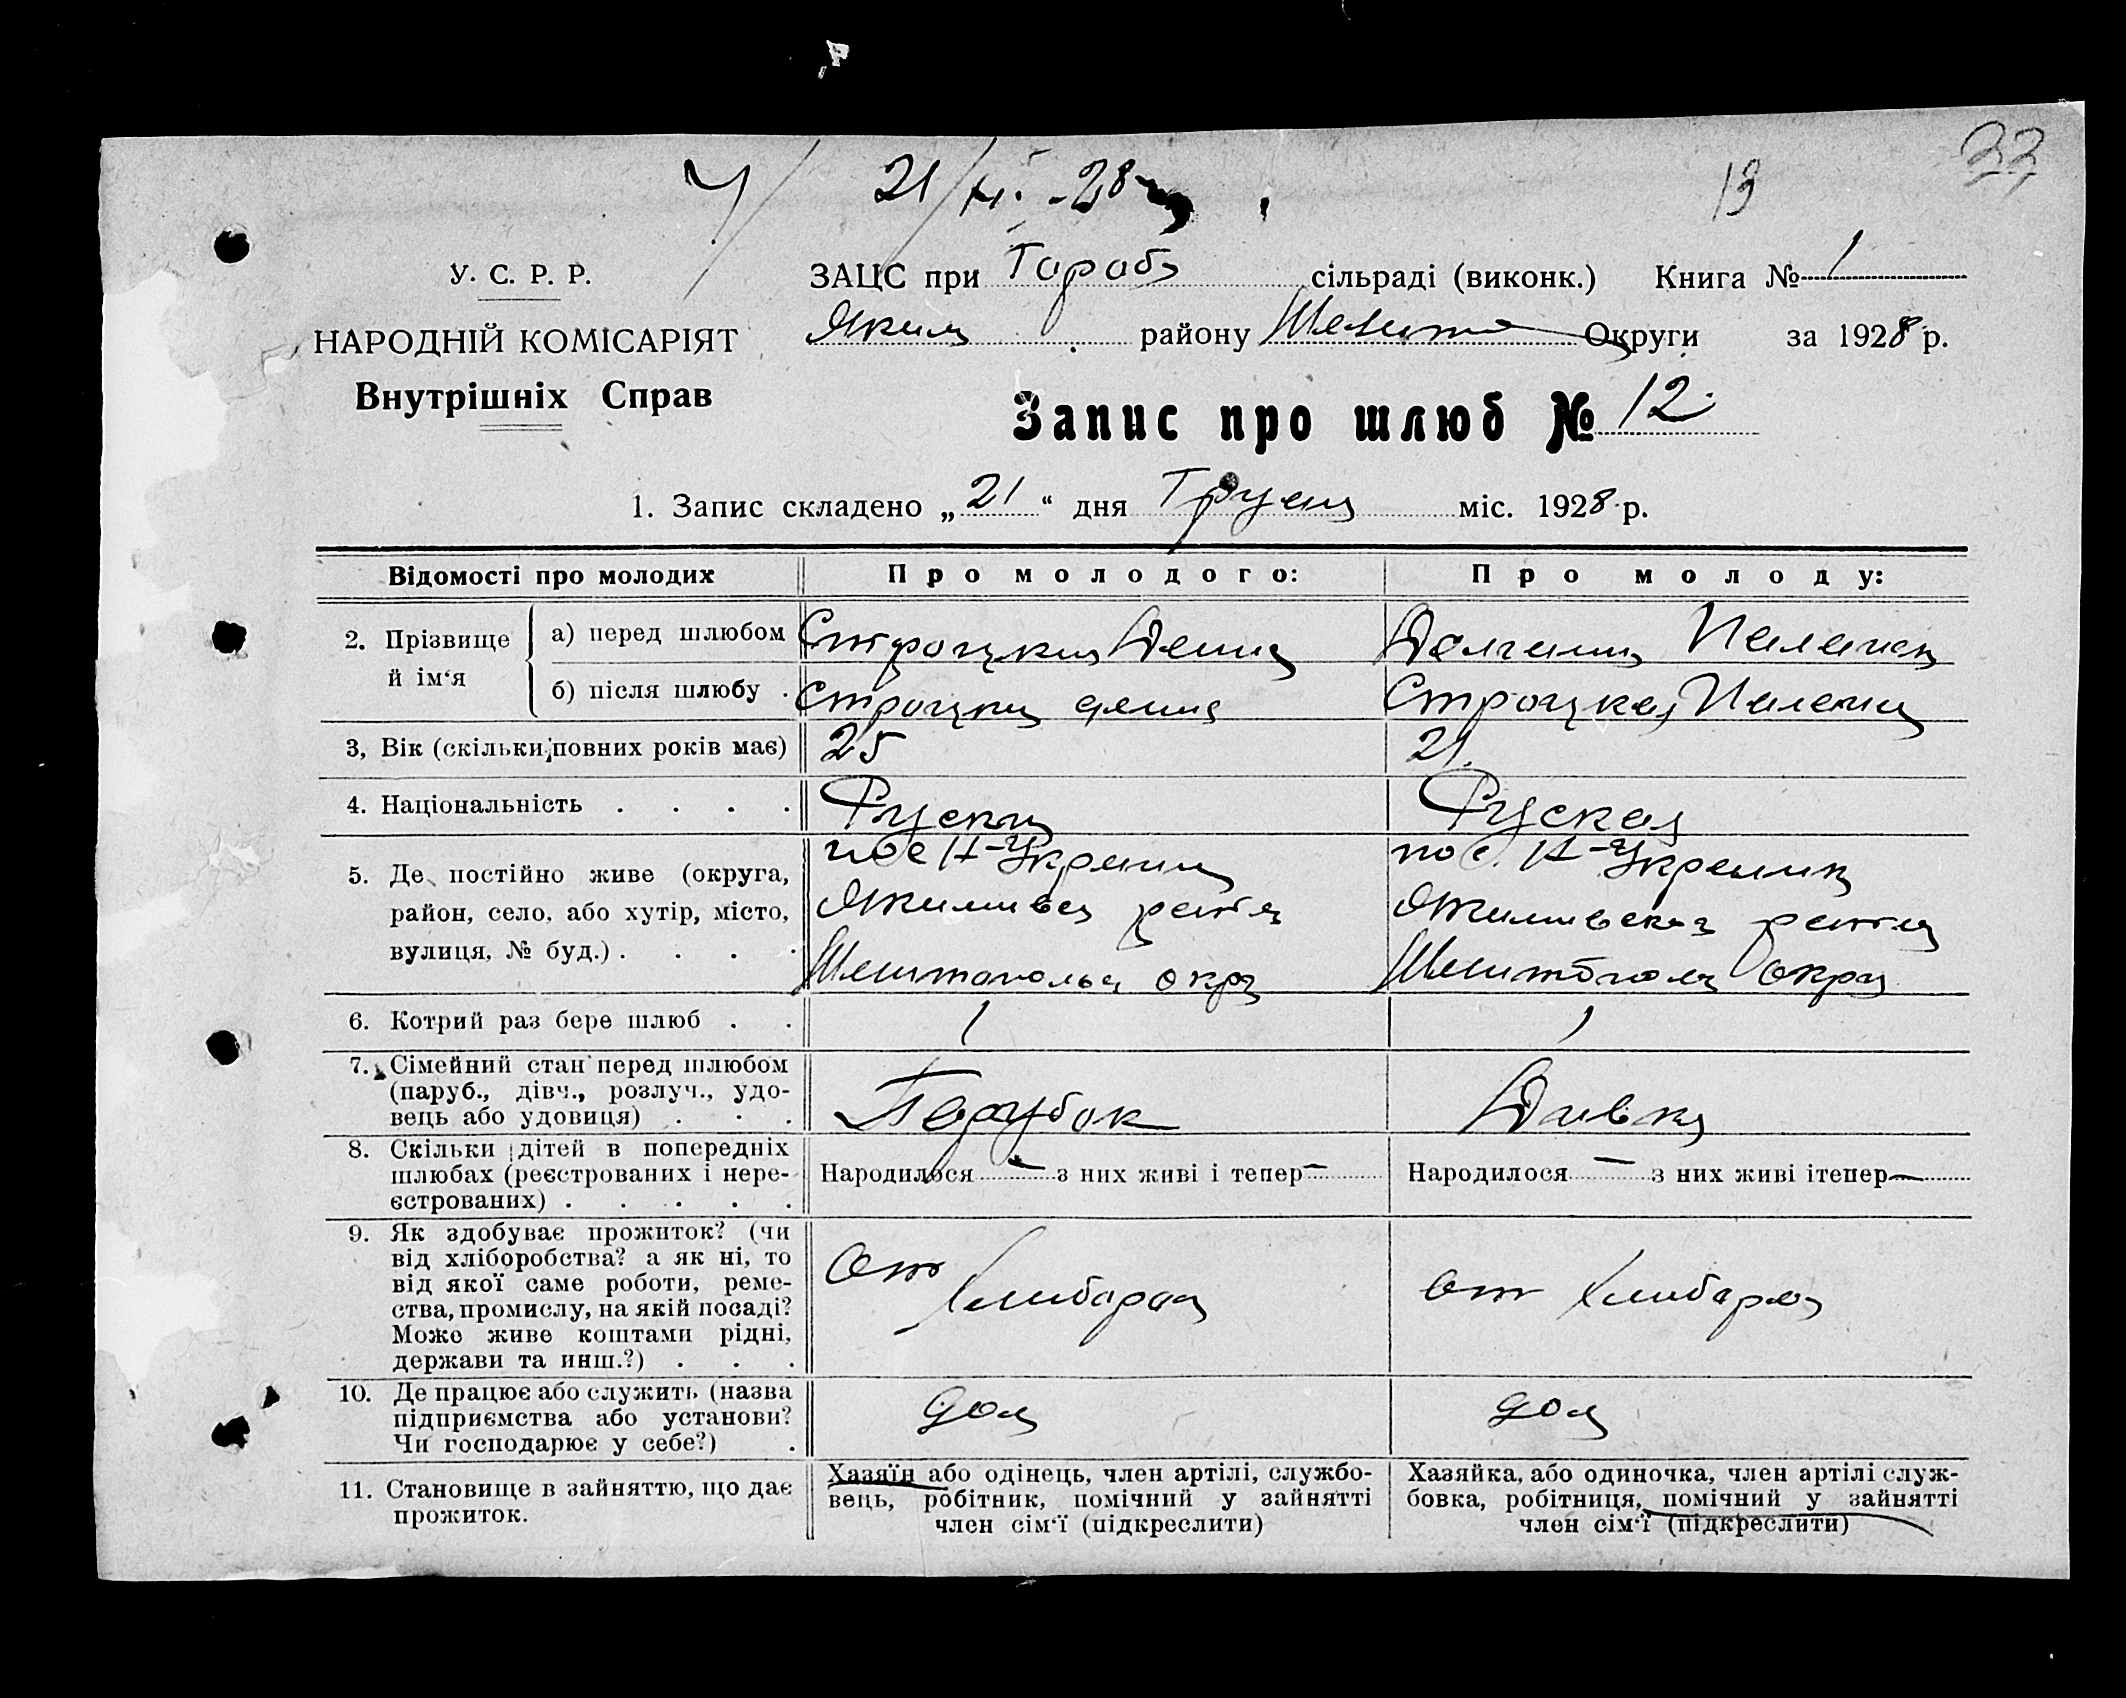 33
21/XI-28 13
У. С. Р. Р.
НАРОДНІЙ КОМІСАРІЯТ
Внутрішніх Справ
ЗАЦС при сільраді (виконк.) Книга № 1
Яким району Мелит Округи за 1928 р.
Запис про шлюб № 12
1. Запис складено „21“ дня міс. 1928 р.
Відомості про молодих Про молодого: Про молоду:
2. Прізвище й ім‘я
а) перед шлюбом Строцкий
б) після шлюбу . Строцкий Строцкая
3, Вік (скільки повних років має) 25 21
4. Національність . . . . Руский Руская
5. Де постійно живе (округа, пос Н-Украинка пос. Н-Украинка
район, село, або хутір, місто,
вулиця, № буд.) . . . . окр окру
6. Котрий раз бере шлюб . . 1 1
7. Сімейний стан перед шлюбом
(паруб., дівч., розлуч., удо-
вець або удовиця) . . . Парубок Дивка
8. Скільки дітей в попередніх
шлюбах (реєстрованих і нере- Народилося — з них живі і тепер — Народилося — з них живі ітепер —
єстрованих) . . . . .
9. Як здобуває прожиток? (чи
від хліборобства? а як ні, то
від якої саме роботи, реме- От От
ства, промислу, на якій посаді?
Може живе коштами рідні,
держави та инш.?) . . .
10. Де працює або служить (назва
підприємства або установи? дома дома
Чи господарює у себе?) .
11. Становище в зайняттю, що дає Хазяїн або одінець, член артілі, службо- Хазяйка, або одиночка, член артілі служ-
прожиток. вець, робітник, помічний у зайнятті бовка, робітниця, помічний у зайнятті
член сім‘ї (підкреслити) член сім‘ї (підкреслити)